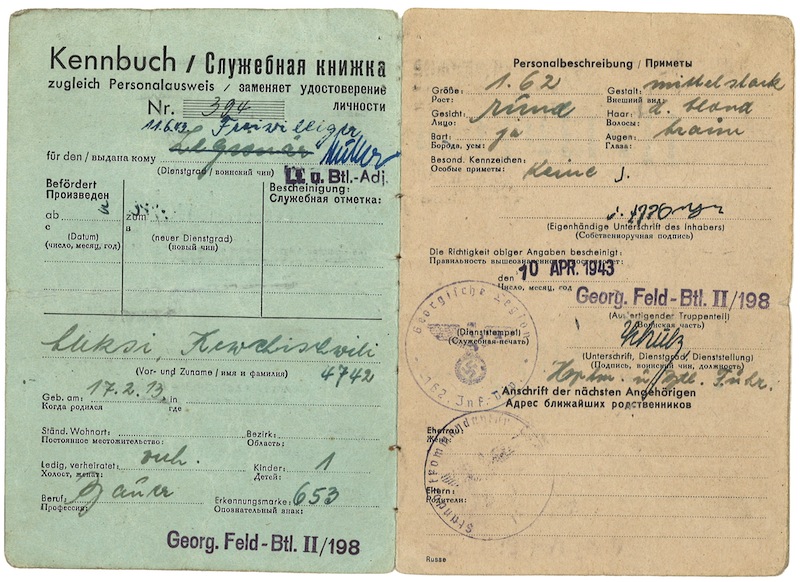 Kennbuch / Служебная книжка
zugleich Personalausweis / заменяет удостоверение
личности
Nr. 394
11.6.43 Freiwilliger
Legionär Müller
für den / выдана кому
(Dienstgrad / воинский чин) Lt. u. Btl.-Adj.
Befördert
Произведен
Bescheinigung:
Служебная отметка:
ab
с
zum
в
(Datum)
(число, месяц, год)
(neuer Dienstgrad)
(новый чин)
(Vor- und Zuname / имя и фамилия)
4742
Geb. am: 17.2.13. in
Когда родился где
Ständ. Wohnort:
Постоянное местожительство:
Bezirk:
Область:
Ledig, verheiratet: verh.
Холост, женат:
Kinder: 1
Детей:
Beruf: Bauer
Профессия:
Erkennungsmarke: 653
Опознавательный знак:
Georg. Feld-Btl. II/198
Personalbeschreibung / Приметы
Größe: 1.62
Рост:
Gestalt: mittelstark
Внешний вид:
Gesicht: rund
Лицо:
Haar: d. blond
Волосы:
Bart: ja
Борода, усы:
Augen: braun
Глаза:
Besond. Kennzeichen: Keine
Особые приметы:
(Eigenhändige Unterschrift des Inhabers)
(Собственноручная подпись)
Die Richtigkeit obiger Angaben bescheinigt:
Правильность
den 10 APR. 1943
Число, месяц, год
Georg. Feld-Btl. II/198
(Ausfertigender Truppenteil)
(Воинская часть)
Georgische Legion
162. Inf.
(Dienststempel)
(Служебная печать)
Schulz
(Unterschrift, Dienstgrad, Dienststellung)
(Подпись, воинский чин, должность)
Hptm. u. Btl. Führ.
Anschrift der nächsten Angehörigen
Адрес ближайших родственников
Ehefrau:
Жена:
Eltern:
Родители:
Russe